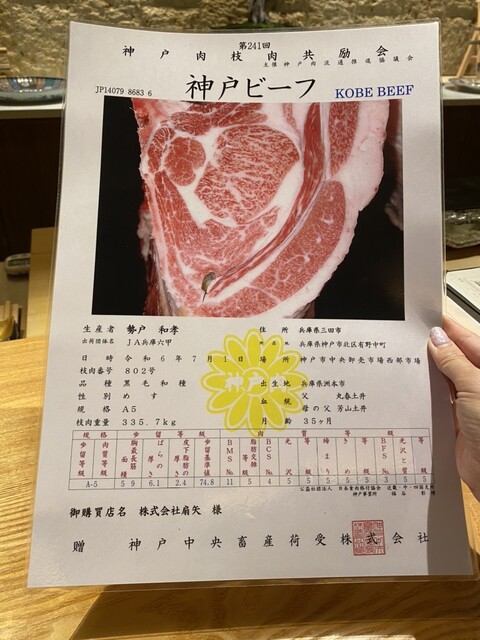 第241回
神戸肉枝肉共励会
主催神戸肉流通推進協議会
JP14079 8683 6
神戸ビーフ
KOBE BEEF
生産者 勢戸 和孝 住所 兵庫県三田市
出荷団体名 JA兵庫六甲 兵庫県神戸市北区有野中町
日時 令和6年7月1日 場所 神戸市中央卸売市場西部市場
枝肉番号 802号
品種 黒毛和種 出生地 兵庫県洲本市
性別 めす 血統 父 丸春土井
規格 A5 母の父 芳山土井
枝肉重量 335.7kg 月齢 35ヶ月
神戸
規格 歩留等級 肉質等級
歩留等級 肉質等級 胸最長筋面積 ばらの厚さ 皮下脂肪の厚さ 歩留基準値 BMS No. 脂肪交雑 BCS No. 光沢 等級 締まり きめ 等級 BFS No. 光沢と質 等級
A-5 59 6.1 2.4 74.8 11 5 4 5 5 5 5 5 3 5 5
公益社団法人 日本食肉格付協会 近畿・中・四国支所
神戸事業所
御購買店名 株式会社扇矢 様
贈 神戸中央畜産荷受株式会社